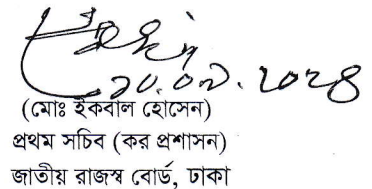 ২০.০৯.২০২৪
(মোঃ ইকবাল হোসেন)
প্রথম সচিব (কর প্রশাসন)
জাতীয় রাজস্ব বোর্ড, ঢাকা